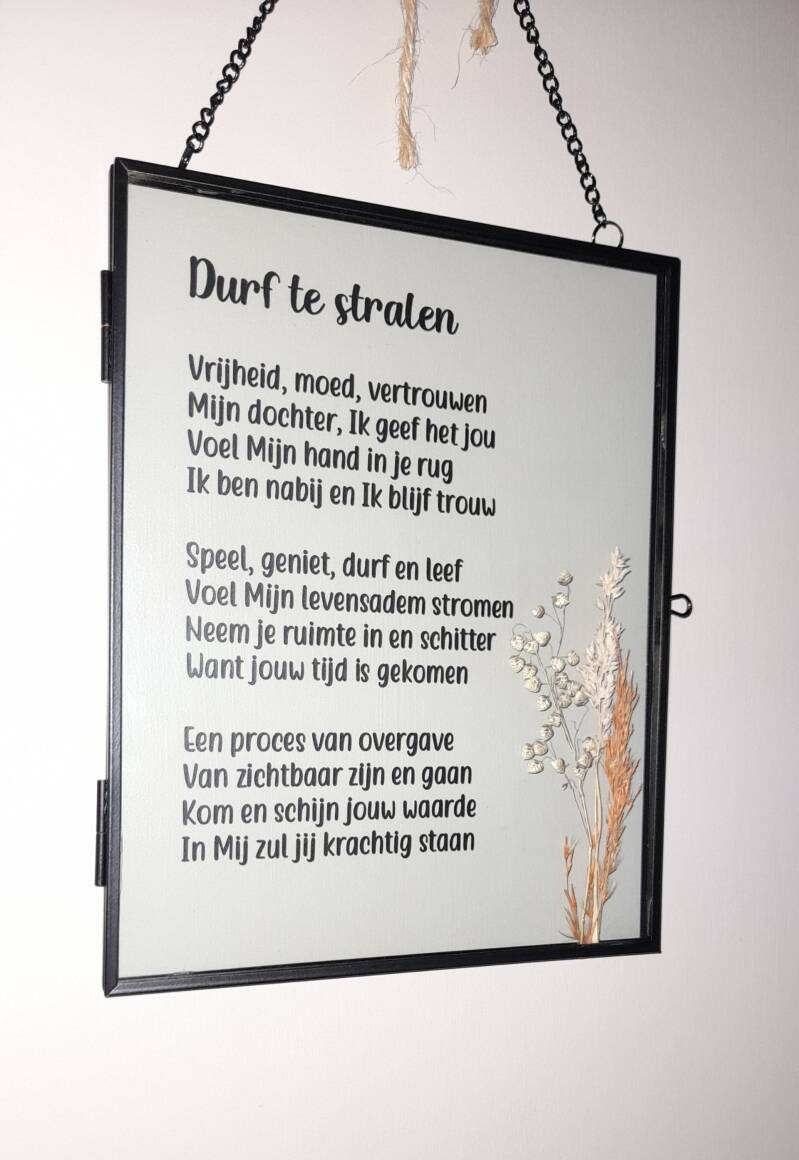 Durf te stralen
Vrijheid, moed, vertrouwen
Mijn dochter, Ik geef het jou
Voel Mijn hand in je rug
Ik ben nabij en Ik blijf trouw
Speel, geniet, durf en leef
Voel Mijn levensadem stromen
Neem je ruimte in en schitter
Want jouw tijd is gekomen
Een proces van overgave
Van zichtbaar zijn en gaan
Kom en schijn jouw waarde
In Mij zul jij krachtig staan